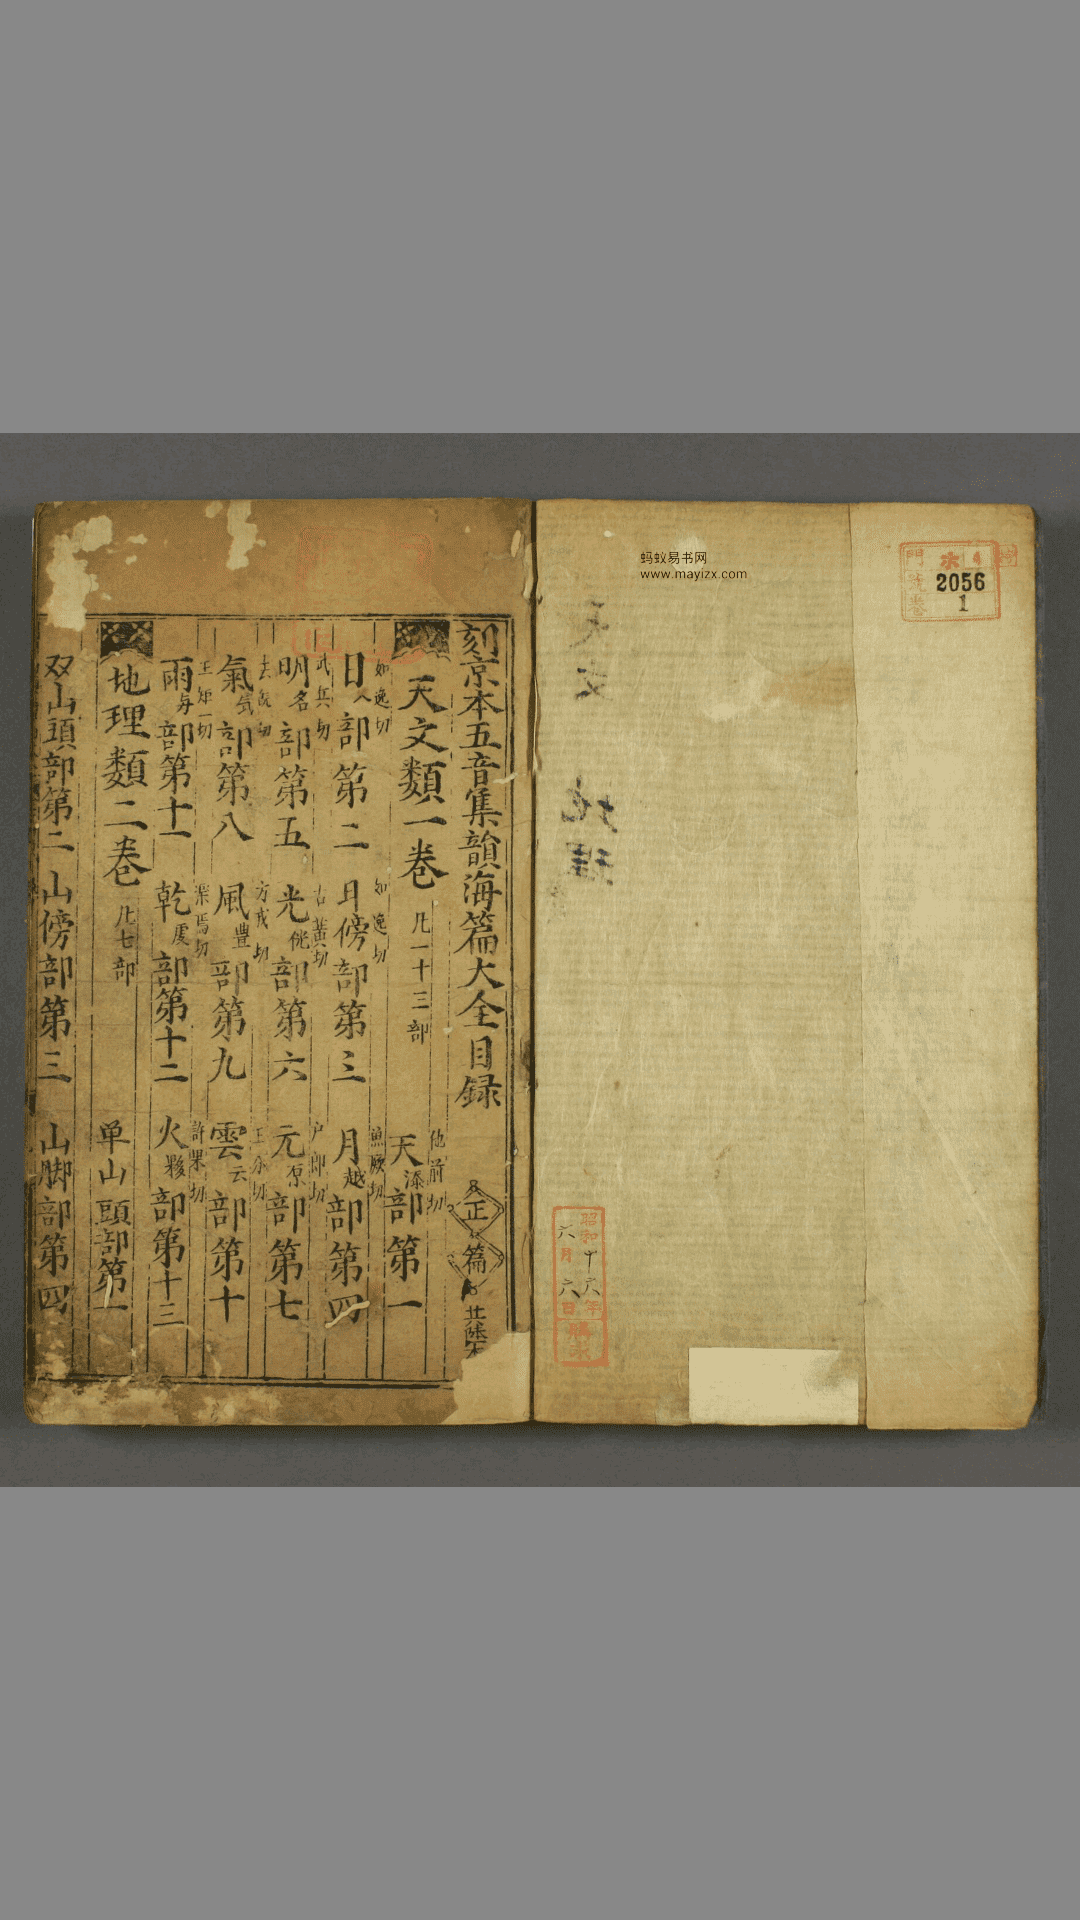 蚂蚁易书网
www.mayizx.com
2056
1
昭和十六年
六月六日
天文
地理
刻京本五音集韻海篇大全目録
正篇
天文類一卷 凡一十三部
天添部第一 他前切
日人部第二 如逸切
日傍部第三 如逸切
月越部第四 魚厥切
明名部第五 武兵切
光侊部第六 古黃切
元原部第七
氣部第八
風豊部第九 方戎切
雲云部第十
雨与部第十一 王矩切
乾虔部第十二 渠焉切
火夥部第十三 許果切
地理類二卷 凡七部
单山頭部第一
双山頭部第二 山傍部第三 山脚部第四